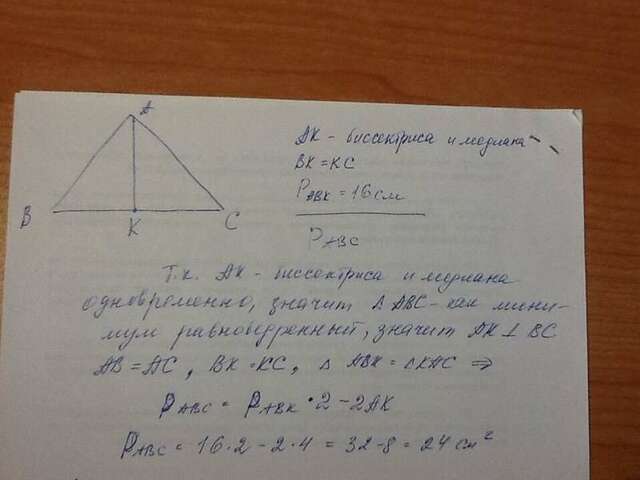 A
B
K
C
AK - биссектриса и медиана
BK = KC
PABK = 16 см
PABC
Т.к. AK - биссектриса и медиана
одновременно, значит Δ ABC - как мини-
мум равнобедренный, значит AK ⊥ BC
AB = AC, BK = KC, Δ ABK = ΔKAC ⇒
PABC = PABK • 2 - 2AK
PABC = 16 • 2 - 2 • 4 = 32 - 8 = 24 см²